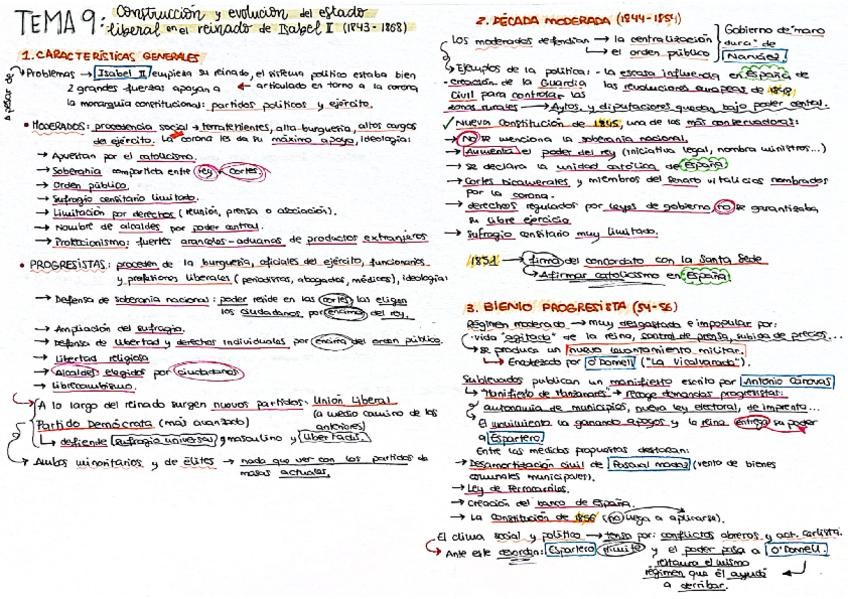 TEMA 9: Construcción y evolución del estado
liberal en el reinado de Isabel II (1843-1868)
1. CARACTERÍSTICAS GENERALES
a pesar de
Problemas → Isabel II empieza su reinado, el sistema político estaba bien
2 grandes fuerzas apoyan a ← articulado en torno a la corona
la monarquía constitucional: partidos políticos y ejército.
• MODERADOS: procedencia social → terratenientes, alta burguesía, altos cargos
de ejército. La corona les da su máximo apoyo, ideología:
→ Apuestan por el catolicismo.
→ Soberanía compartida entre rey + cortes
→ Orden público.
→ Sufragio censitario limitado.
→ Limitación por derechos (reunión, prensa o asociación).
→ Nombre de alcaldes por poder central.
→ Proteccionismo: fuertes aranceles-aduanas de productos extranjeros
• PROGRESISTAS: proceden de la burguesía, oficiales del ejército, funcionarios
y profesiones liberales (periodistas, abogados, médicos), ideología:
→ Defensa de soberanía nacional: poder reside en las cortes, las eligen
los ciudadanos, por encima del rey.
→ Ampliación del sufragio.
→ Defensa de libertad y derechos individuales por encima del orden público.
→ Libertad religiosa
→ Alcaldes elegidos por ciudadanos
→ Librecambismo.
→ A lo largo del reinado surgen nuevos partidos: Unión Liberal
(a medio camino de los
anteriores)
Partido Demócrata (más avanzado)
↳ defiende sufragio universal masculino y libertades.
→ Ambos minoritarios y de élites → nada que ver con los partidos de
masas actuales.
2. DÉCADA MODERADA (1844-1854)
Los moderados defendían → la centralización
→ el orden público
Gobierno de "mano
dura" de
Narváez.
→ Ejemplos de la política: - la escasa influencia en España de
- creación de la Guardia las revoluciones europeas de 1848
Civil para controlar las
zonas rurales. → Aytos, y diputaciones quedan bajo poder central.
✓ Nueva Constitución de 1845, una de las más conservadoras:
→ No se menciona la soberanía nacional.
→ Aumenta el poder del rey (iniciativa legal, nombra ministros...)
→ se declara la unidad católica de España
→ Cortes bicamerales y miembros del Senado vitalicios nombrados
por la corona.
→ derechos regulados por leyes de gobierno, no se garantizaba
su libre ejercicio.
→ Sufragio censitario muy limitado.
1851 → firma del concordato con la Santa Sede
→ Afirmar catolicismo en España
3. BIENIO PROGRESISTA (54-56)
Régimen moderado → muy desgastado e impopular por:
"vida "agitada" de la reina, control de prensa, subida de precios...
→ se produce un nuevo levantamiento militar.
↳ Encabezado por O'Donell ("La Vicalvarada").
Sublevados publican un manifiesto escrito por Antonio Cánovas
↳ "Manifiesto de Manzanares" → recoge demandas progresistas:
autonomía de municipios, nueva ley electoral, de imprenta...
El movimiento va ganando apoyos y la reina entrega su poder
a Espartero
Entre las medidas propuestas destacan:
→ Desamortización civil de Pascual Madoz (venta de bienes
comunales municipales).
→ Ley de Ferrocarriles.
→ Creación del banco de España.
→ La Constitución de 1856 (no llega a aplicarse).
El clima social y político → tenso por: conflictos obreros y act. carlista.
→ Ante este desorden: Espartero dimite y el poder pasa a O'Donell.
restaura el mismo
régimen que él ayudó
a derribar.